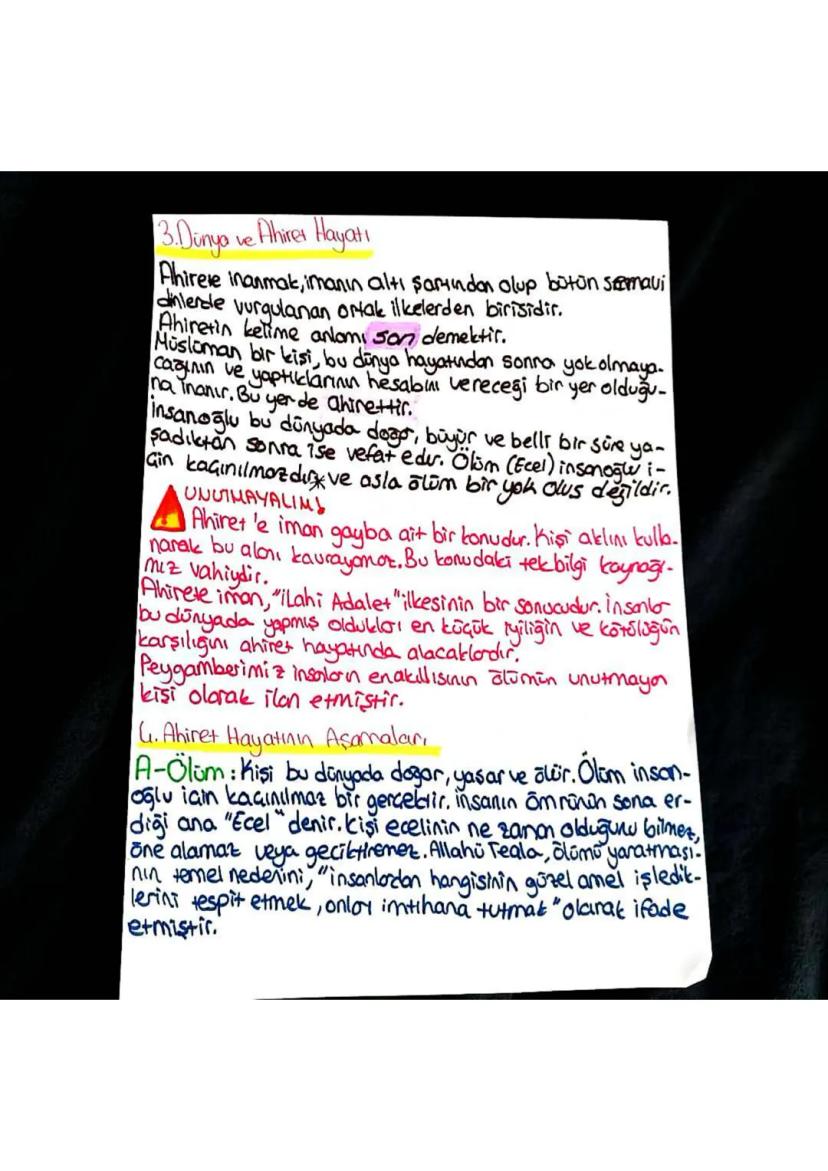 3.Dünya ve Ahiret Hayatı
Ahirete inanmak, imanın altı şartından olup bütün semavi
dinlerde vurgulanan ortak ilkelerden birisidir.
Ahiretin kelime anlamı son demektir.
Müslüman bir kişi, bu dünya hayatından sonra yok olmaya-
cağının ve yaptıklarının hesabını vereceği bir yer olduğu-
na inanır. Bu yer de ahirettir.
İnsanoğlu bu dünyada doğar, büyür ve belli bir süre ya-
şadıktan sonra ise vefat eder. Ölüm (Ecel) insanoğlu i-
çin kaçınılmazdır ve asla ölüm bir yok oluş değildir.
UNUTMAYALIM!
Ahiret'e iman gayba ait bir konudur. Kişi aklını kulla-
narak bu alanı kavrayamaz. Bu konudaki tek bilgi kaynağı-
mız vahiydir.
Ahirete iman, "ilahi Adalet" ilkesinin bir sonucudur. İnsanlar
bu dünyada yapmış oldukları en küçük iyiliğin ve kötülüğün
karşılığını ahiret hayatında alacaklardır.
Peygamberimiz insanların en akıllısının ölümün unutmayan
kişi olarak ilan etmiştir.
4. Ahiret Hayatının Aşamaları
A-Ölüm: Kişi bu dünyada doğar, yaşar ve ölür. Ölüm insan-
oğlu için kaçınılmaz bir gerçektir. İnsanın ömrünün sona er-
diği ana "Ecel" denir. Kişi ecelinin ne zaman olduğunu bilmez,
öne alamaz veya geciktiremez. Allahü Teala, ölümü yaratması-
nın temel nedenini, "insanlardan hangisinin güzel amel işledik-
lerini tespit etmek, onları imtihana tutmak" olarak ifade
etmiştir.